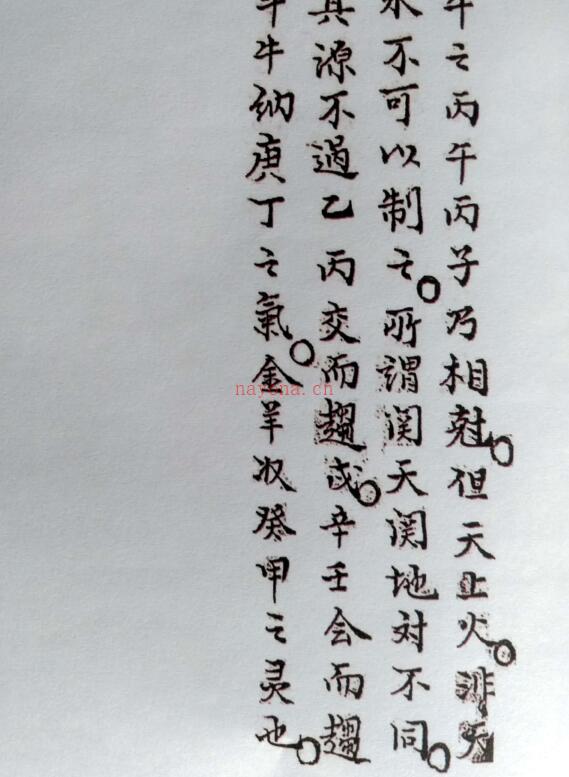 之丙午丙子乃相尅。但天上火。非天
水不可以制之。所謂関天関地对不同。
其源不過乙丙交而趨戌。辛壬会而趨
斗牛納庚丁之氣。金羊收癸甲之灵也。
nayona.cn